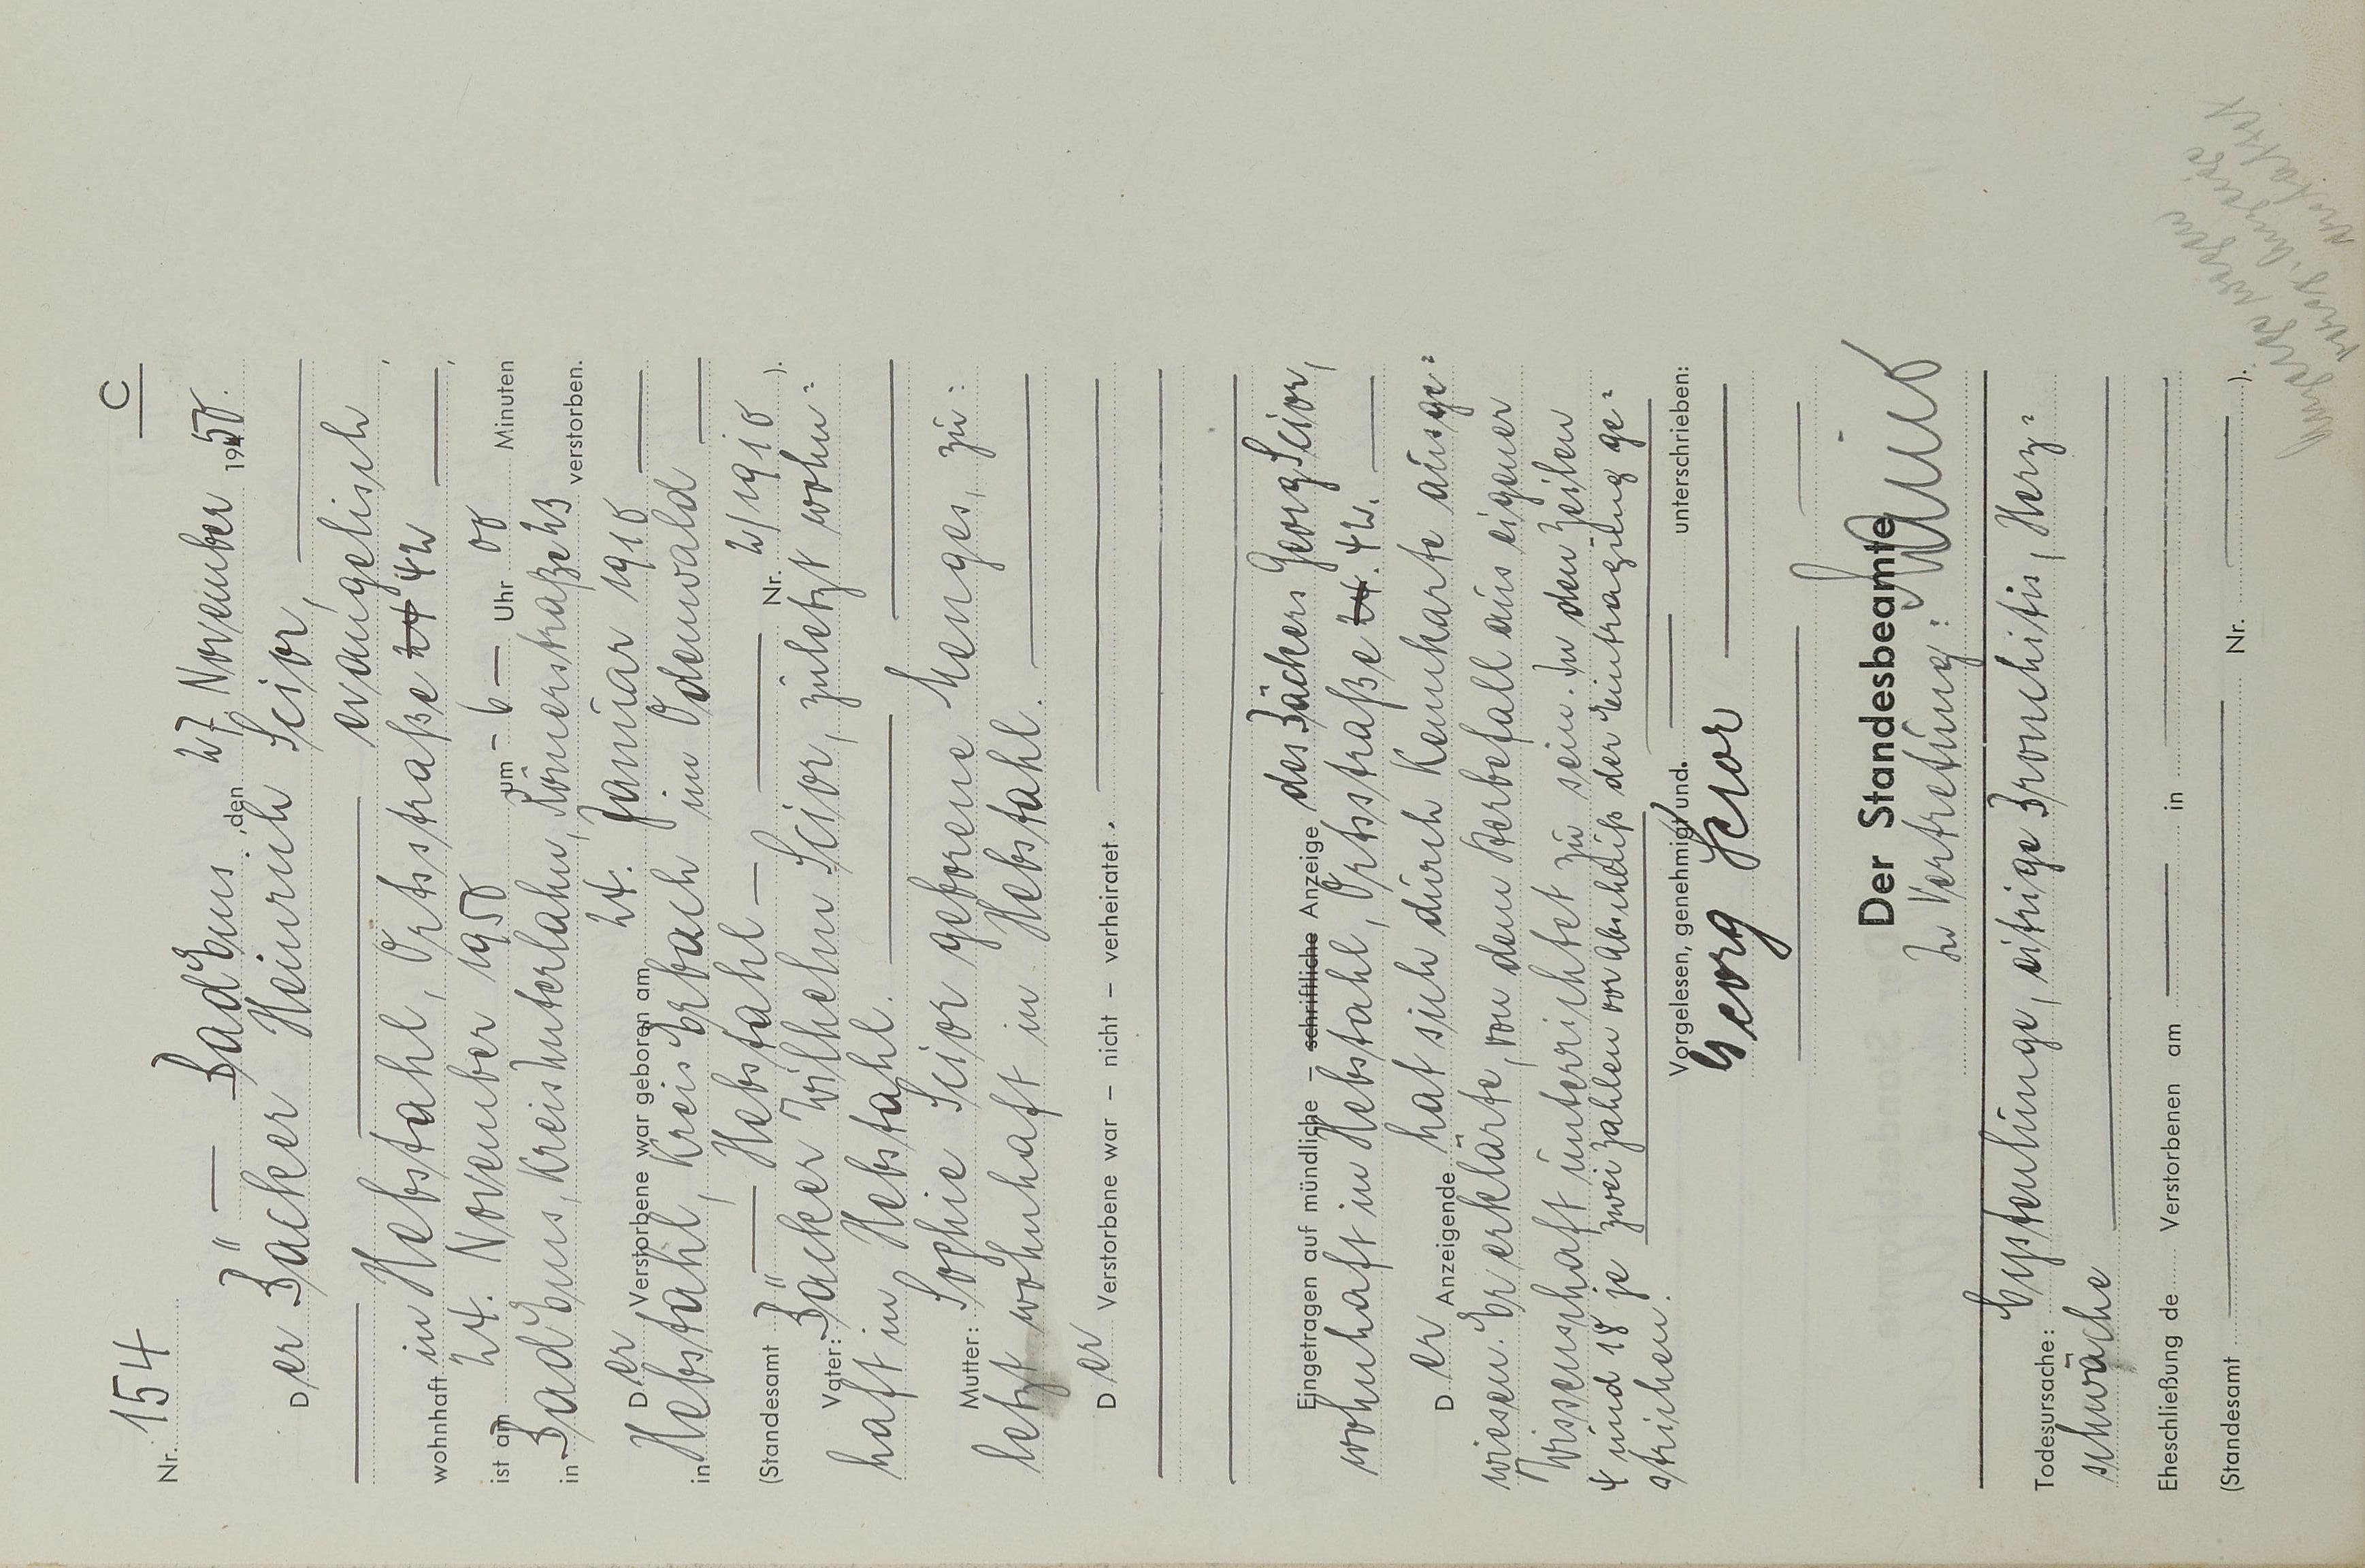 C
Nr. 154
— Bad Ems, den 27 November 1950.
Der Bäcker Heinrich Scior,
evangelisch
wohnhaft in Hebstahl, Ortsstraße 24 42
ist am 24. November 1950 um – 6 — Uhr 00 Minuten
in Bad Ems, Kreis Unterlahn, Römerstraße 23 verstorben.
Der Verstorbene war geboren am 24. Januar 1910
in Hebstahl, Kreis Erbach im Odenwald
(Standesamt — Hebstahl — Nr. 2/1910 ).
Vater: Bäcker Wilhelm Scior, zuletzt wohn=
haft in Hebstahl.
Mutter: Sophie Scior geborene Menges, zu=
letzt wohnhaft in Hebstahl.
Der Verstorbene war – nicht – verheiratet.
Eingetragen auf mündliche – schriftliche Anzeige des Bäckers Georg Scior,
wohnhaft in Hebstahl, Ortsstraße 24. 42.
Der Anzeigende hat sich durch Kennkarte ausge=
wiesen. Er erklärte, von dem Sterbefall aus eigener
Wissenschaft unterrichtet zu sein. In den Zeilen
4 und 18 je zwei Zahlen vor Abschluß der Eintragung ge=
strichen.
Vorgelesen, genehmigt und unterschrieben:
Georg Scior
Der Standesbeamte
In Vertretung:
Todesursache: Cystenlunge, eitrige Bronchitis, Herz=
schwäche
Eheschließung de Verstorbenen am — in —
(Standesamt — Nr. — ).